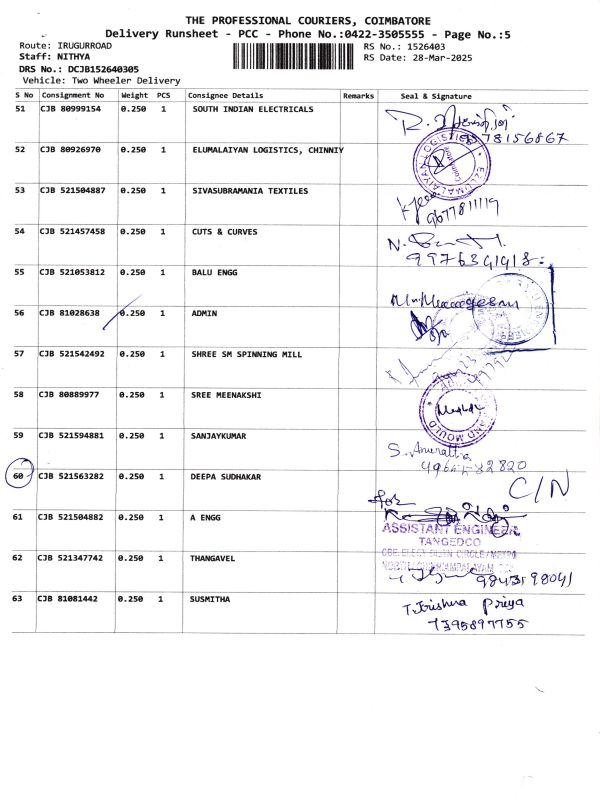 THE PROFESSIONAL COURIERS, COIMBATORE
Delivery Runsheet - PCC - Phone No.:0422-3505555 - Page No.:5
Route: IRUGURROAD
RS No.: 1526403
Staff: NITHYA
RS Date: 28-Mar-2025
DRS No.: DCJB152640305
Vehicle: Two Wheeler Delivery
S No Consignment No Weight PCS Consignee Details Remarks Seal & Signature
51 CJB 80999154 0.250 1 SOUTH INDIAN ELECTRICALS
52 CJB 80926970 0.250 1 ELUMALAIYAN LOGISTICS, CHINNIY
ELUMALAIYAN LOGISTICS
53 CJB 521504887 0.250 1 SIVASUBRAMANIA TEXTILES
9677811119
54 CJB 521457458 0.250 1 CUTS & CURVES
55 CJB 521053812 0.250 1 BALU ENGG
56 CJB 81028638 0.250 1 ADMIN
57 CJB 521542492 0.250 1 SHREE SM SPINNING MILL
58 CJB 80889977 0.250 1 SREE MEENAKSHI
AND MOULD
59 CJB 521594881 0.250 1 SANJAYKUMAR
60 CJB 521563282 0.250 1 DEEPA SUDHAKAR C/N
for
61 CJB 521504882 0.250 1 A ENGG
ASSISTANT ENGINEER
TANGEDCO
62 CJB 521347742 0.250 1 THANGAVEL
63 CJB 81081442 0.250 1 SUSMITHA
T. Krishna Priya
7395897755